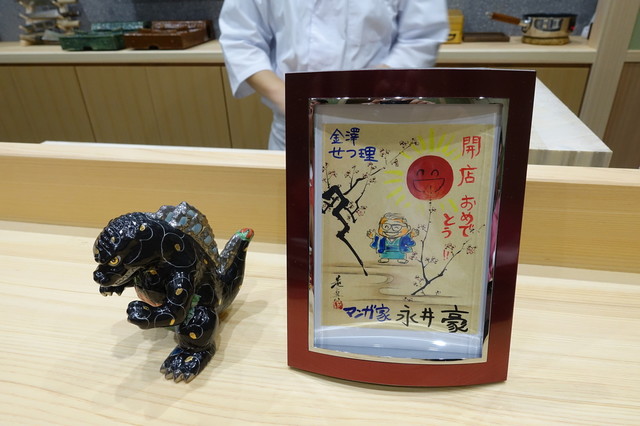 金澤
せつ理
開店
おめで
とう!!
マンガ家 永井豪